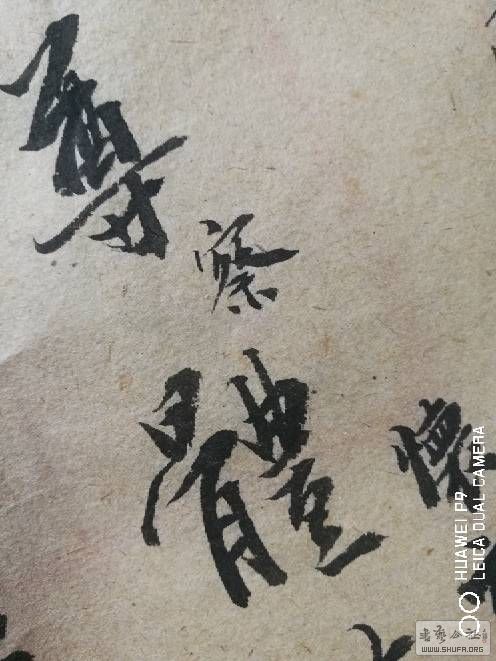 尊
察
體
懷
HUAWEI P9
LEICA DUAL CAMERA
书艺公社
WWW.SHUFA.ORG